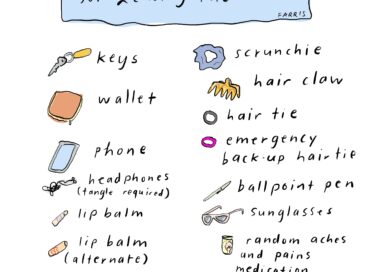 FARRIS
keys
wallet
phone
headphones
(tangle required)
lip balm
lip balm
(alternate)
scrunchie
hair claw
hair tie
emergency
back-up hair tie
ballpoint pen
sunglasses
random aches
and pains
medication